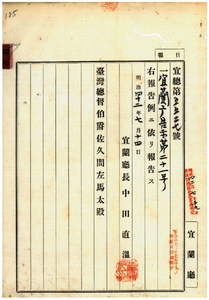 185
日
報
宜總第三三二七號
一宜蘭廳告示第二十一號
右報告例ニ依リ報告ス
明治四十二年七月十四日
宜蘭廳長中田直溫
臺灣總督伯爵佐久間左馬太殿
宜蘭廳